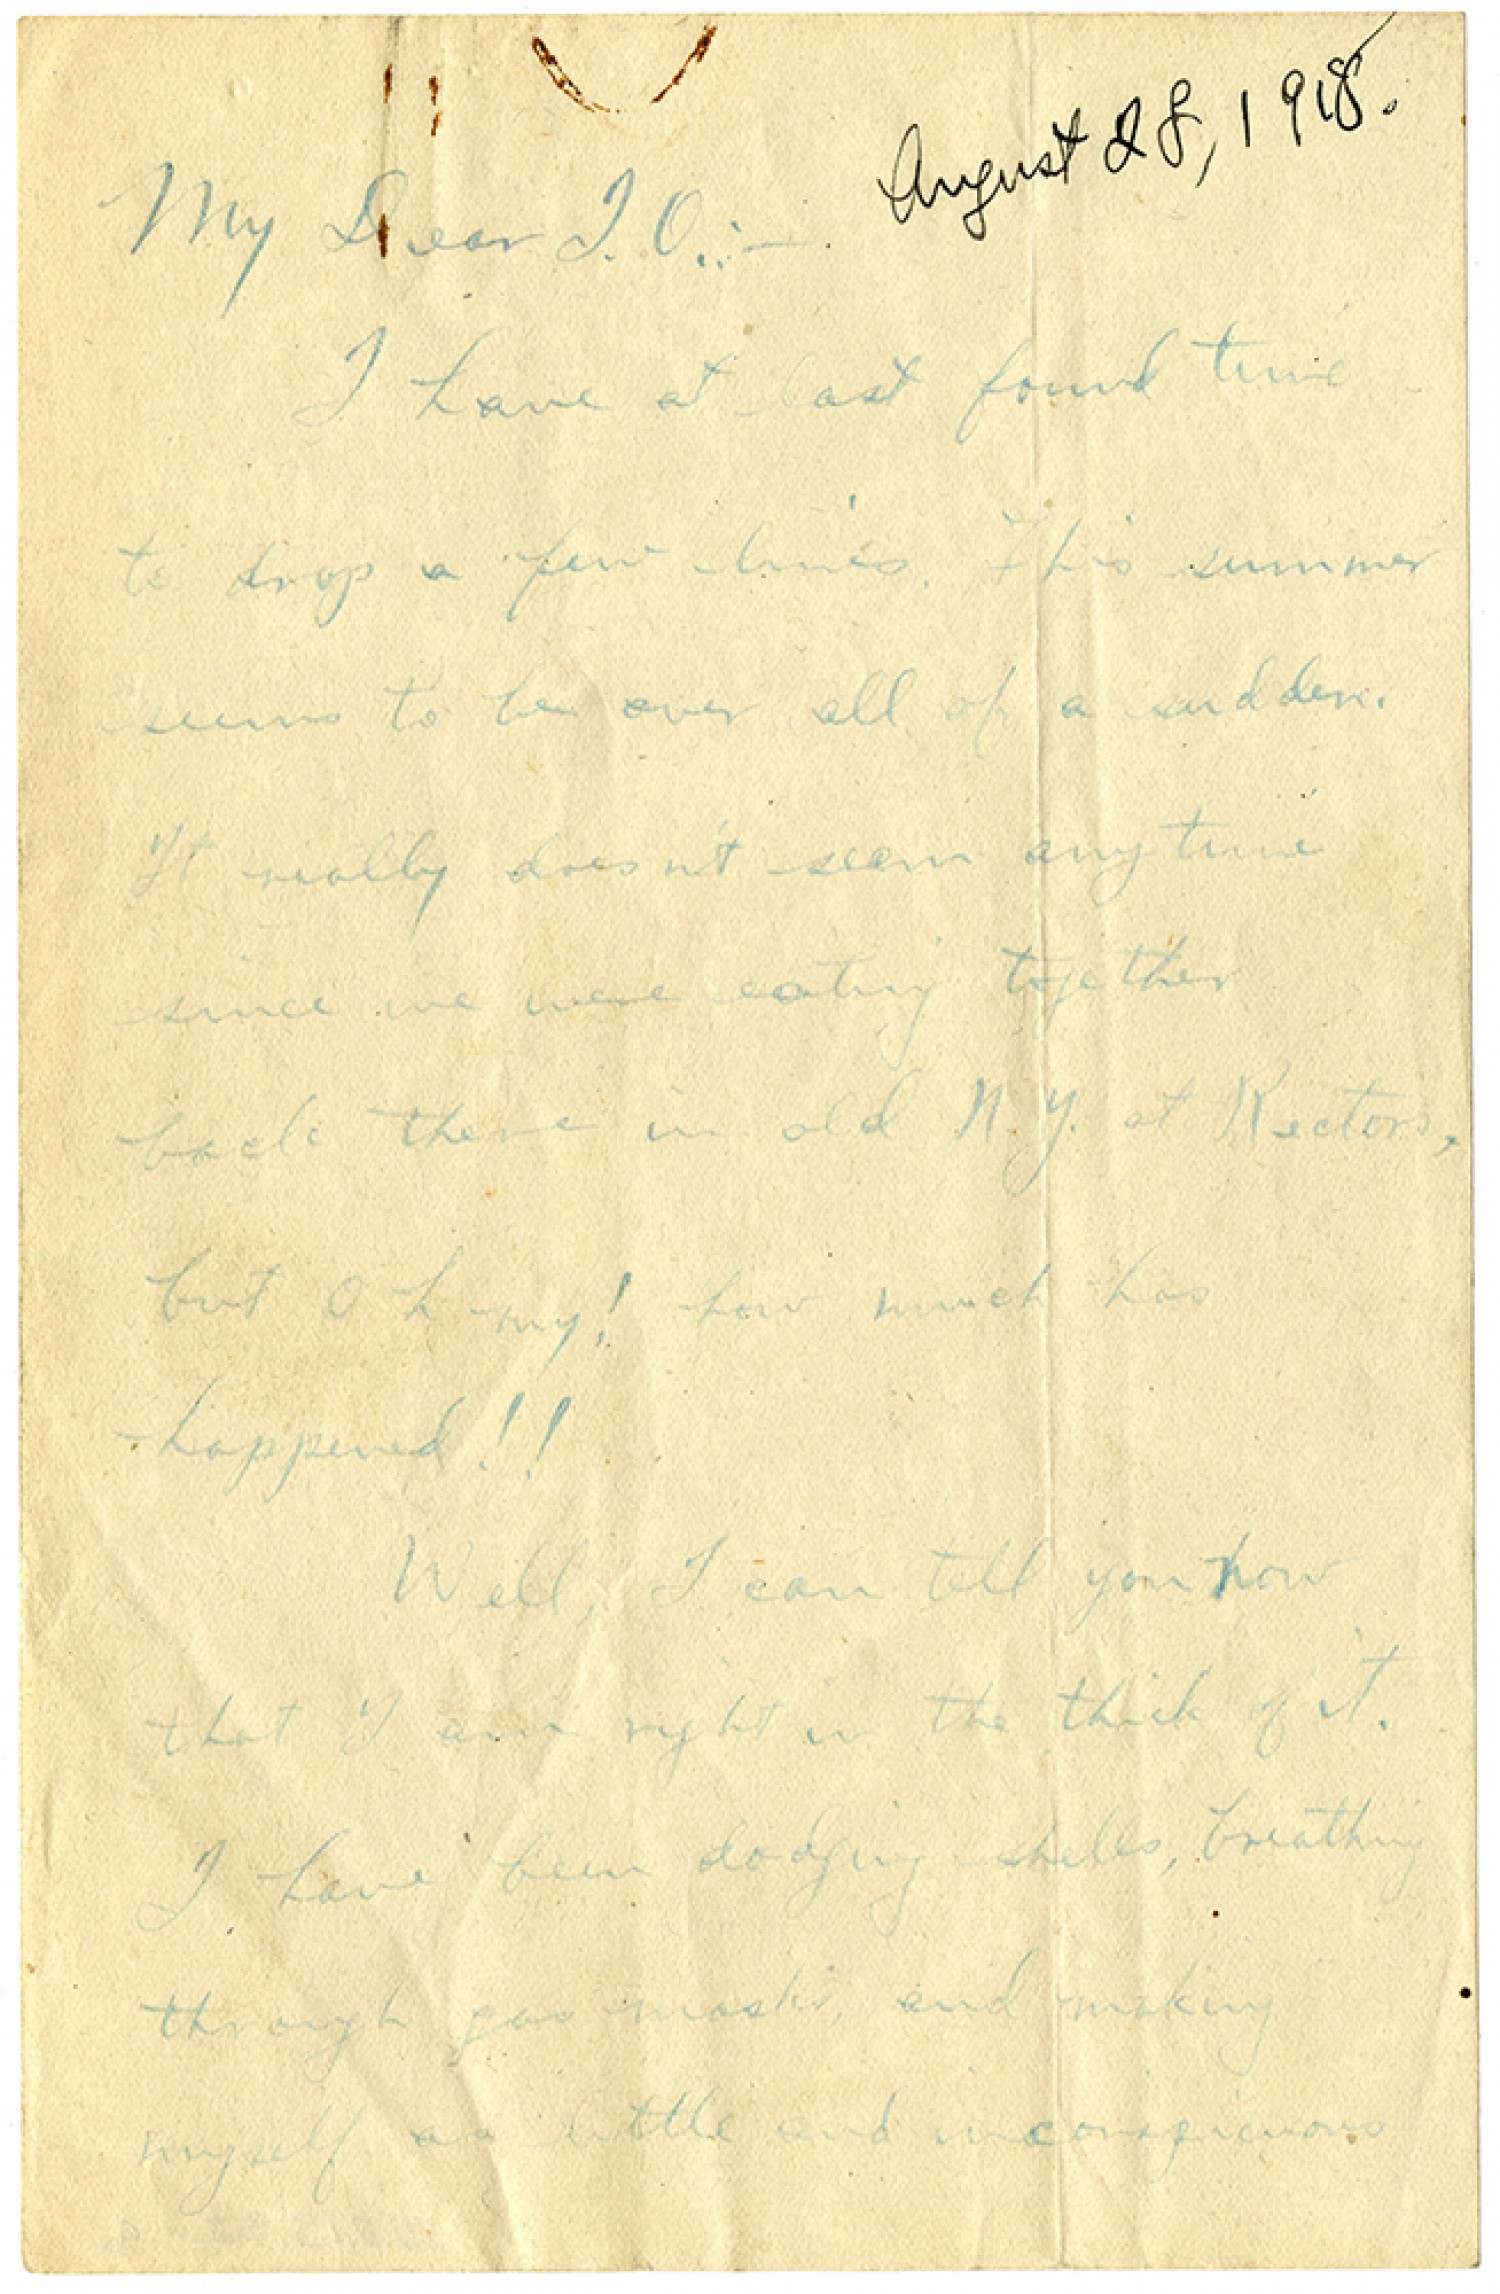 August 28, 1918.
My Dear J. O.:-
I have at last found time
to drop a few lines. This summer
seems to be over all of a sudden.
It really doesn't seem anytime
since we were eating together
back there in old N.Y. at Rectors,
but Oh my! how much has
happened!!
Well, I can tell you now
that I am right in the thick of it.
I have been dodging shells, breathing
through gas masks, and making
myself as little and inconspicuous